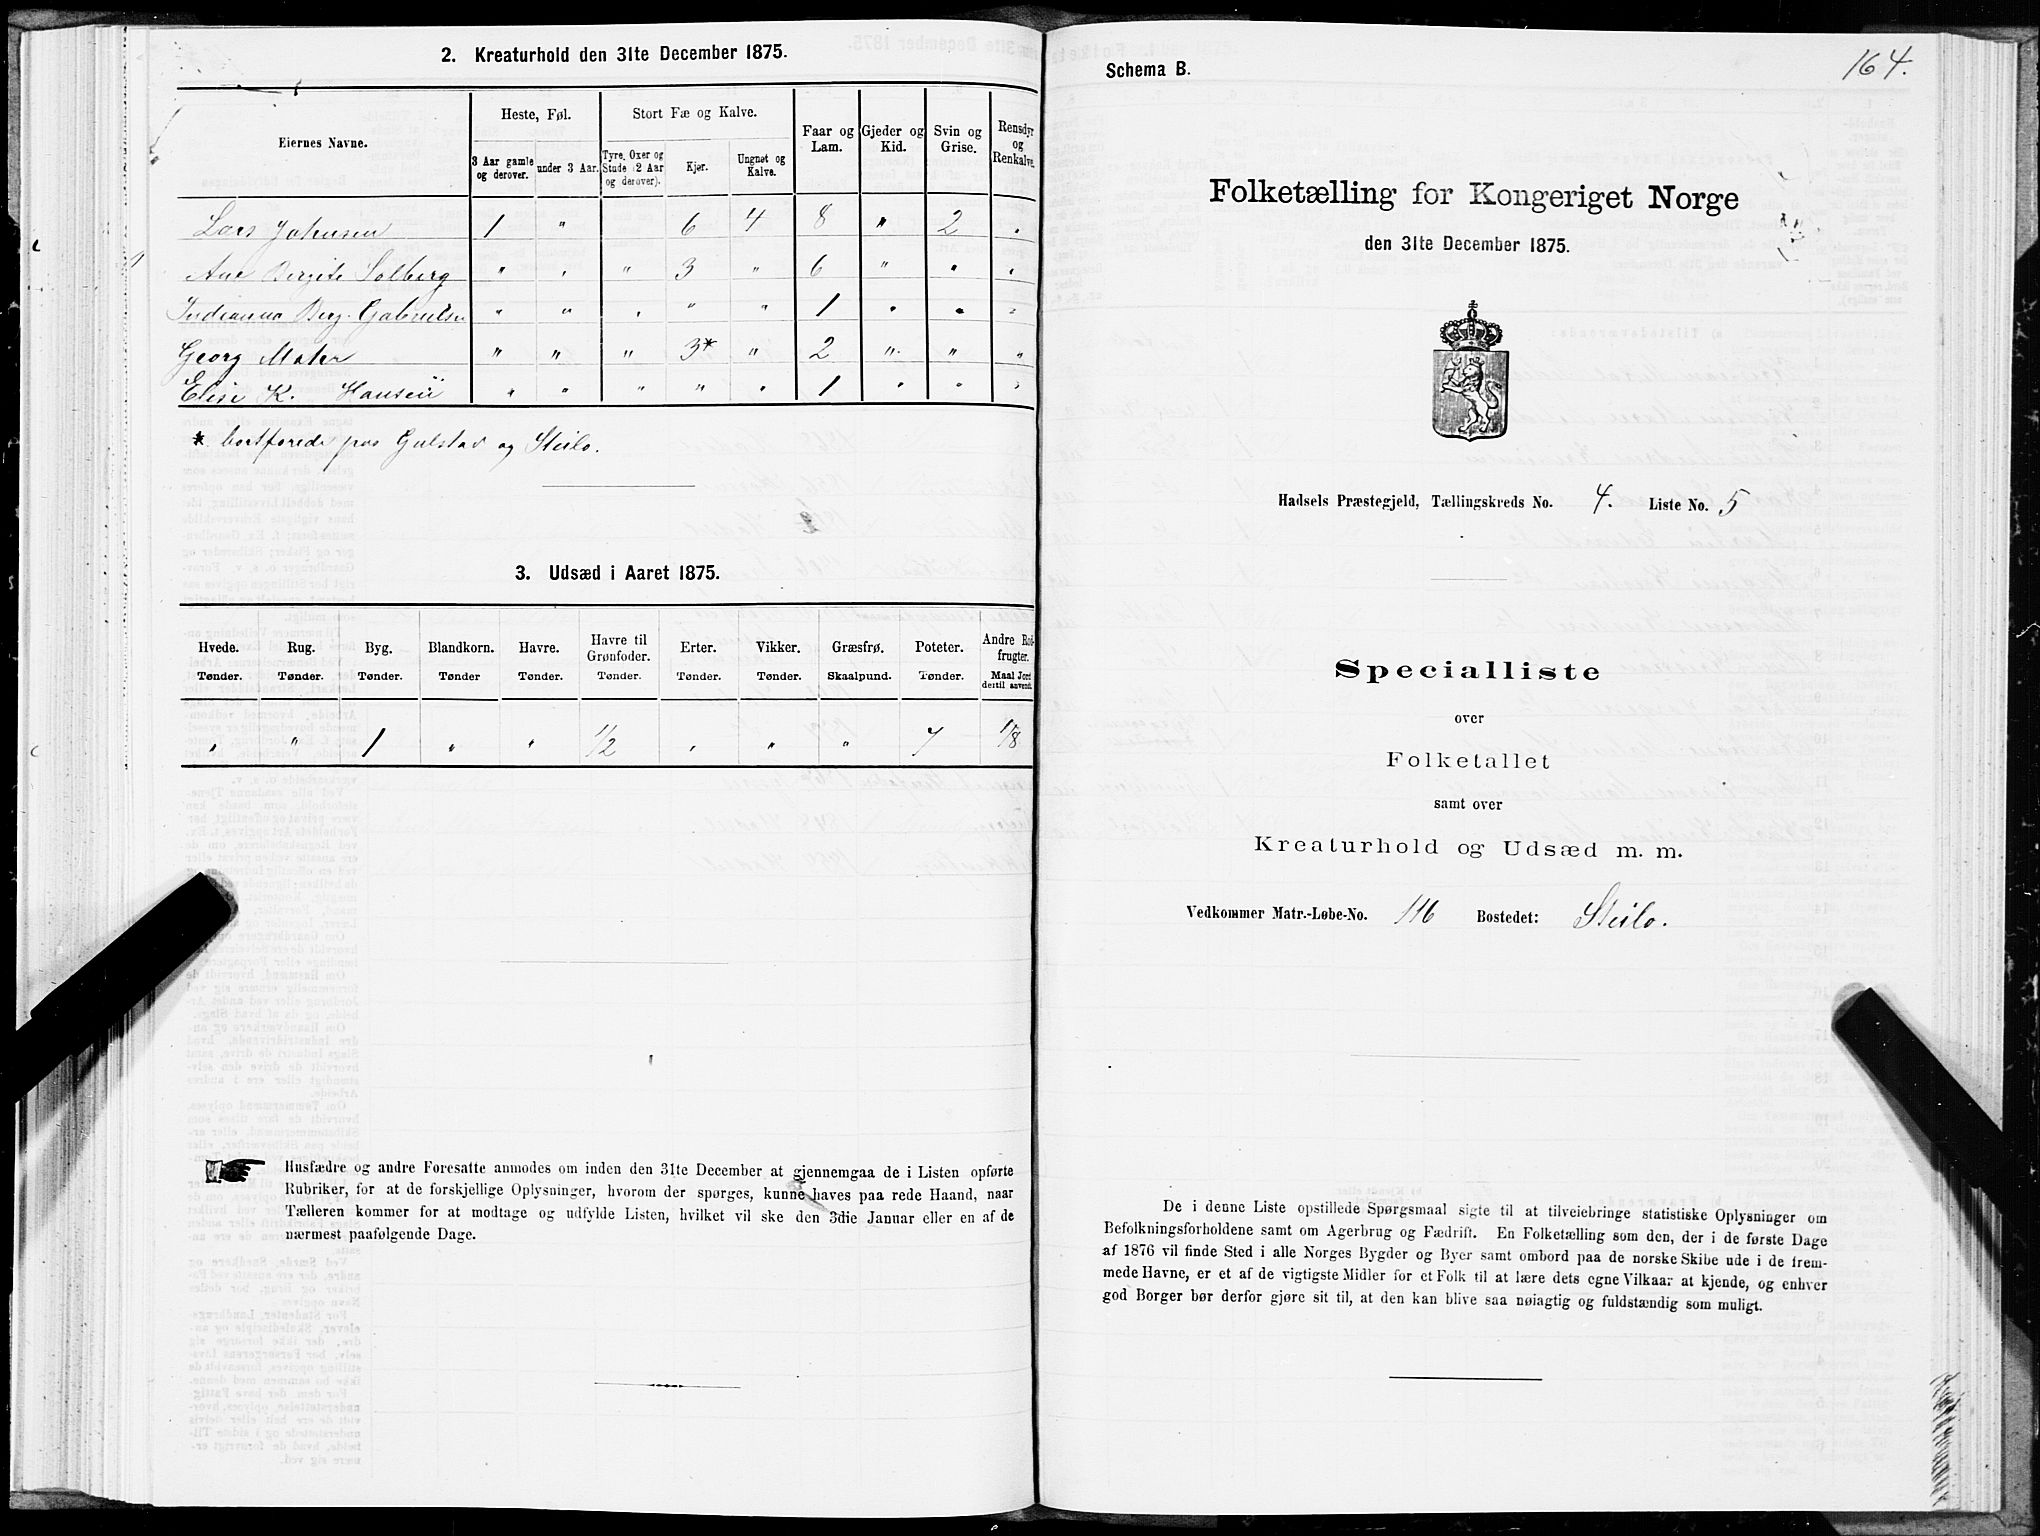 2. Kreaturhold den 31te December 1875.
Eiernes Navne.
Heste, Føl.
Stort Fæ og Kalve.
Faar og Lam.
Gjeder og Kid.
Svin og Grise.
Rensdyr og Renkalve.
3 Aar gamle og derover.
under 3 Aar.
Tyre, Oxer og Stude (2 Aar og derover).
Kjør.
Ungnøt og Kalve.
Lars Johnsen 1 " 6 4 8 " 2 "
Ane Bergite Solberg " " " 3 " 6 " " "
Indianna Berg. Gabrielsen " " " " " 1 " " "
Georg " " " 3* " 2 " " "
Elise K. Hansen " " " " " 1 " " "
* bortforede paa Gulstad og Steilo.
3. Udsæd i Aaret 1875.
Hvede. Rug. Byg. Blandkorn. Havre. Havre til Grønfoder. Erter. Vikker. Græsfrø. Poteter. Andre Rodfrugter.
Tønder. Tønder. Tønder. Tønder Tønder. Tønder. Tønder. Tønder. Skaalpund. Tønder. Maal Jord dertil anvendt.
" " 1 " " 1/2 " " " 7 1/8
Husfædre og andre Foresatte anmodes om inden den 31te December at gjennemgaa de i Listen opførte
Rubriker, for at de forskjellige Oplysninger, hvorom der spørges, kunne haves paa rede Haand, naar
Tælleren kommer for at modtage og udfylde Listen, hvilket vil ske den 3die Januar eller en af de
nærmest paafølgende Dage.
164.
Schema B.
Folketælling for Kongeriget Norge
den 31te December 1875.
Hadsels Præstegjeld, Tællingskreds No. 4. Liste No. 5
Specialliste
over
Folketallet
samt over
Kreaturhold og Udsæd m. m.
Vedkommer Matr.-Løbe-No. 116 Bostedet: Steilo.
De i denne Liste opstillede Spørgsmaal sigte til at tilveiebringe statistiske Oplysninger om
Befolkningsforholdene samt om Agerbrug og Fædrift. En Folketælling som den, der i de første Dage
af 1876 vil finde Sted i alle Norges Bygder og Byer samt ombord paa de norske Skibe ude i de frem-
mede Havne, er et af de vigtigste Midler for et Folk til at lære dets egne Vilkaar at kjende, og enhver
god Borger bør derfor gjøre sit til, at den kan blive saa nøiagtig og fuldstændig som muligt.